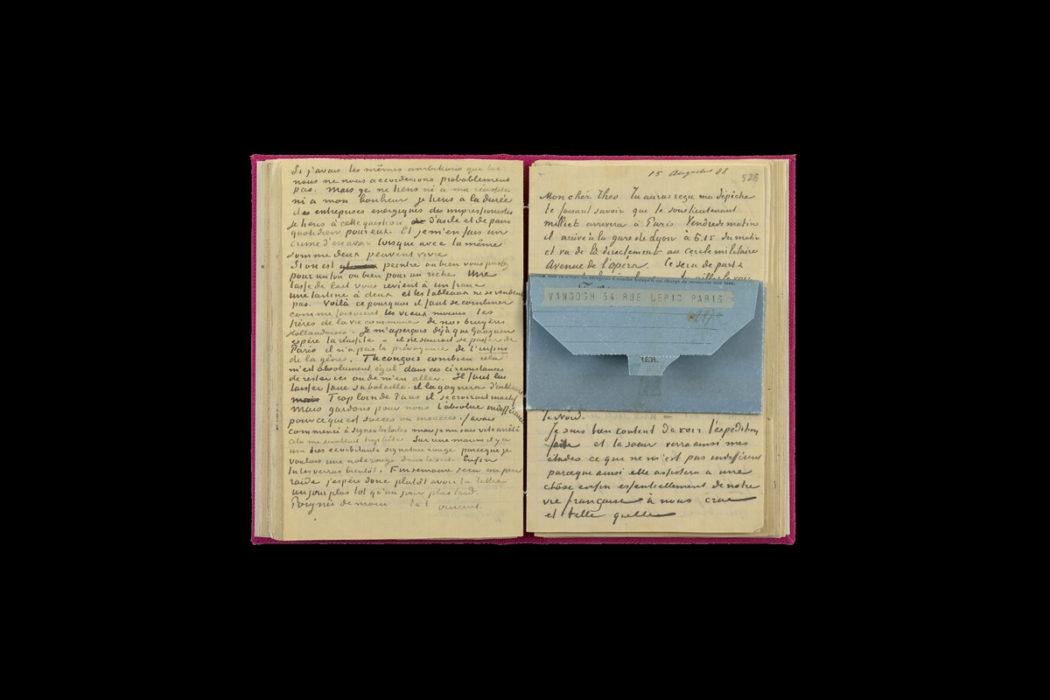 Si j'avais les mêmes ambitions que toi
nous ne nous accorderions probablement
pas. Mais je ne tiens ni a ma réussite
ni a mon bonheur je tiens à la durée
des entreprises energiques des impressionistes
je tiens à cette question de d'asile et de pain
quotidien pour eux. Et je m'en fais un
crime d'en avoir lorsque avec la même
somme deux peuvent vivre
Si on est peintre ou bien vous passez
pour un fou ou bien pour un riche. Une
tasse de lait vous revient à un franc
une tartine à deux et les tableaux ne se vendent
pas. Voilà ce pourquoi il faut se combiner
comme faisaient les vieux moines les
frères de la vie commune de nos bruyères
Hollandaises. Je m'aperçois déjà que Gauguin
espère la réussite – il ne saurait se passer de
Paris il n'a pas la prévoyance de l'infini
de la gêne. Tu conçois combien cela
m'est absolument égal dans ces circonstances
de rester ici ou de m'en aller. Il faut lui
laisser faire sa bataille. il la gagnera d'ailleurs
Trop loin de Paris il se croirait inactif
Mais gardons pour nous l'absolue indifférence
pour ce que est succès ou insuccès. j'avais
commencé à signer les toiles mais je me suis vite arrêté
cela me semblait trop bête. Sur une marine il y a
une très exorbitante signature rouge parceque je
voulais une note rouge dans le vert. Enfin
tu les verras bientôt. Fin semaine sera un peu
raide j'espère donc plutôt avoir ta lettre
un jour plus tot qu'un jour plus tard.
Poignée de main t. à t. Vincent.
15 Augustus 88
526
Mon cher Theo Tu auras reçu ma dépêche
te faisant savoir que le souslieutenant
Milliet arrivera à Paris Vendredi matin
il arrive à la gare de Lyon à 5.15 du matin
et va de là directement au cercle militaire
Avenue de l'opera. Ce sera de part &
VANGOGH 54 RUE LEPIC PARIS
le Nord.
Je suis bien content d'avoir l'expedition
faite et la soeur verra ainsi mes
études ce que ne m'est pas indifférent
parceque ainsi elle assistera a une
chôse enfin essentiellement de notre
vie française à nous, crue
et telle quelle